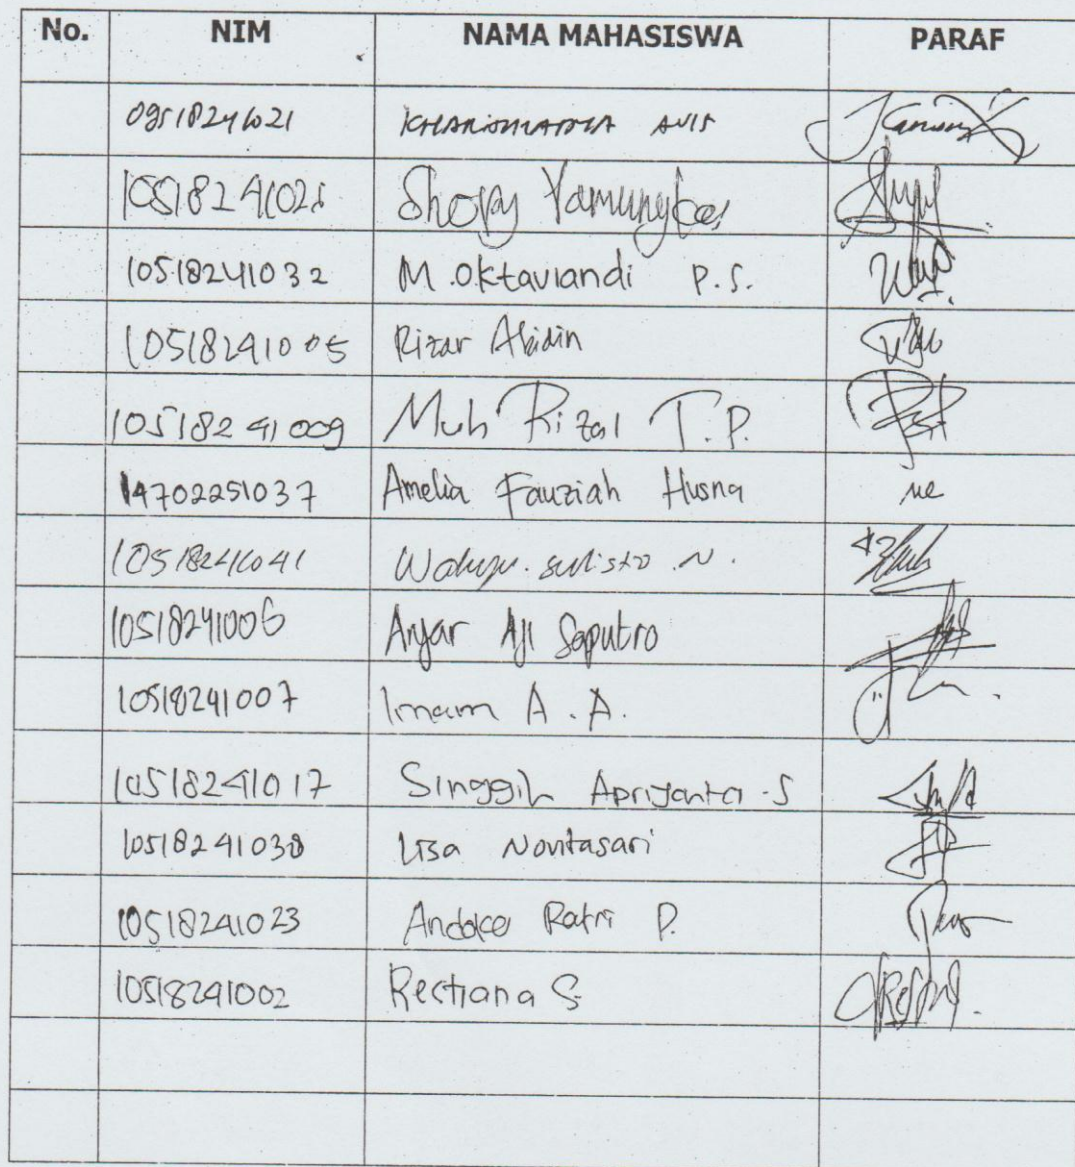 No. NIM NAMA MAHASISWA PARAF
09518241021 KHARISMATIKA AVIS
10518241028 Shopy
10518241032 M. Oktaviandi P.S.
10518241005 Rizar Abidin
10518241009 Muh Rizal T.P.
14702251037 Amelia Fauziah Husna
10518241041 Wahyu. sulisto .N.
10518241006 Anjar Aji Saputro
10518241007 Imam A.A.
10518241017 Singgih Apriyanta .S
10518241038 Lisa Novitasari
10518241023 Ratri P.
10518241002 Rectiana S.